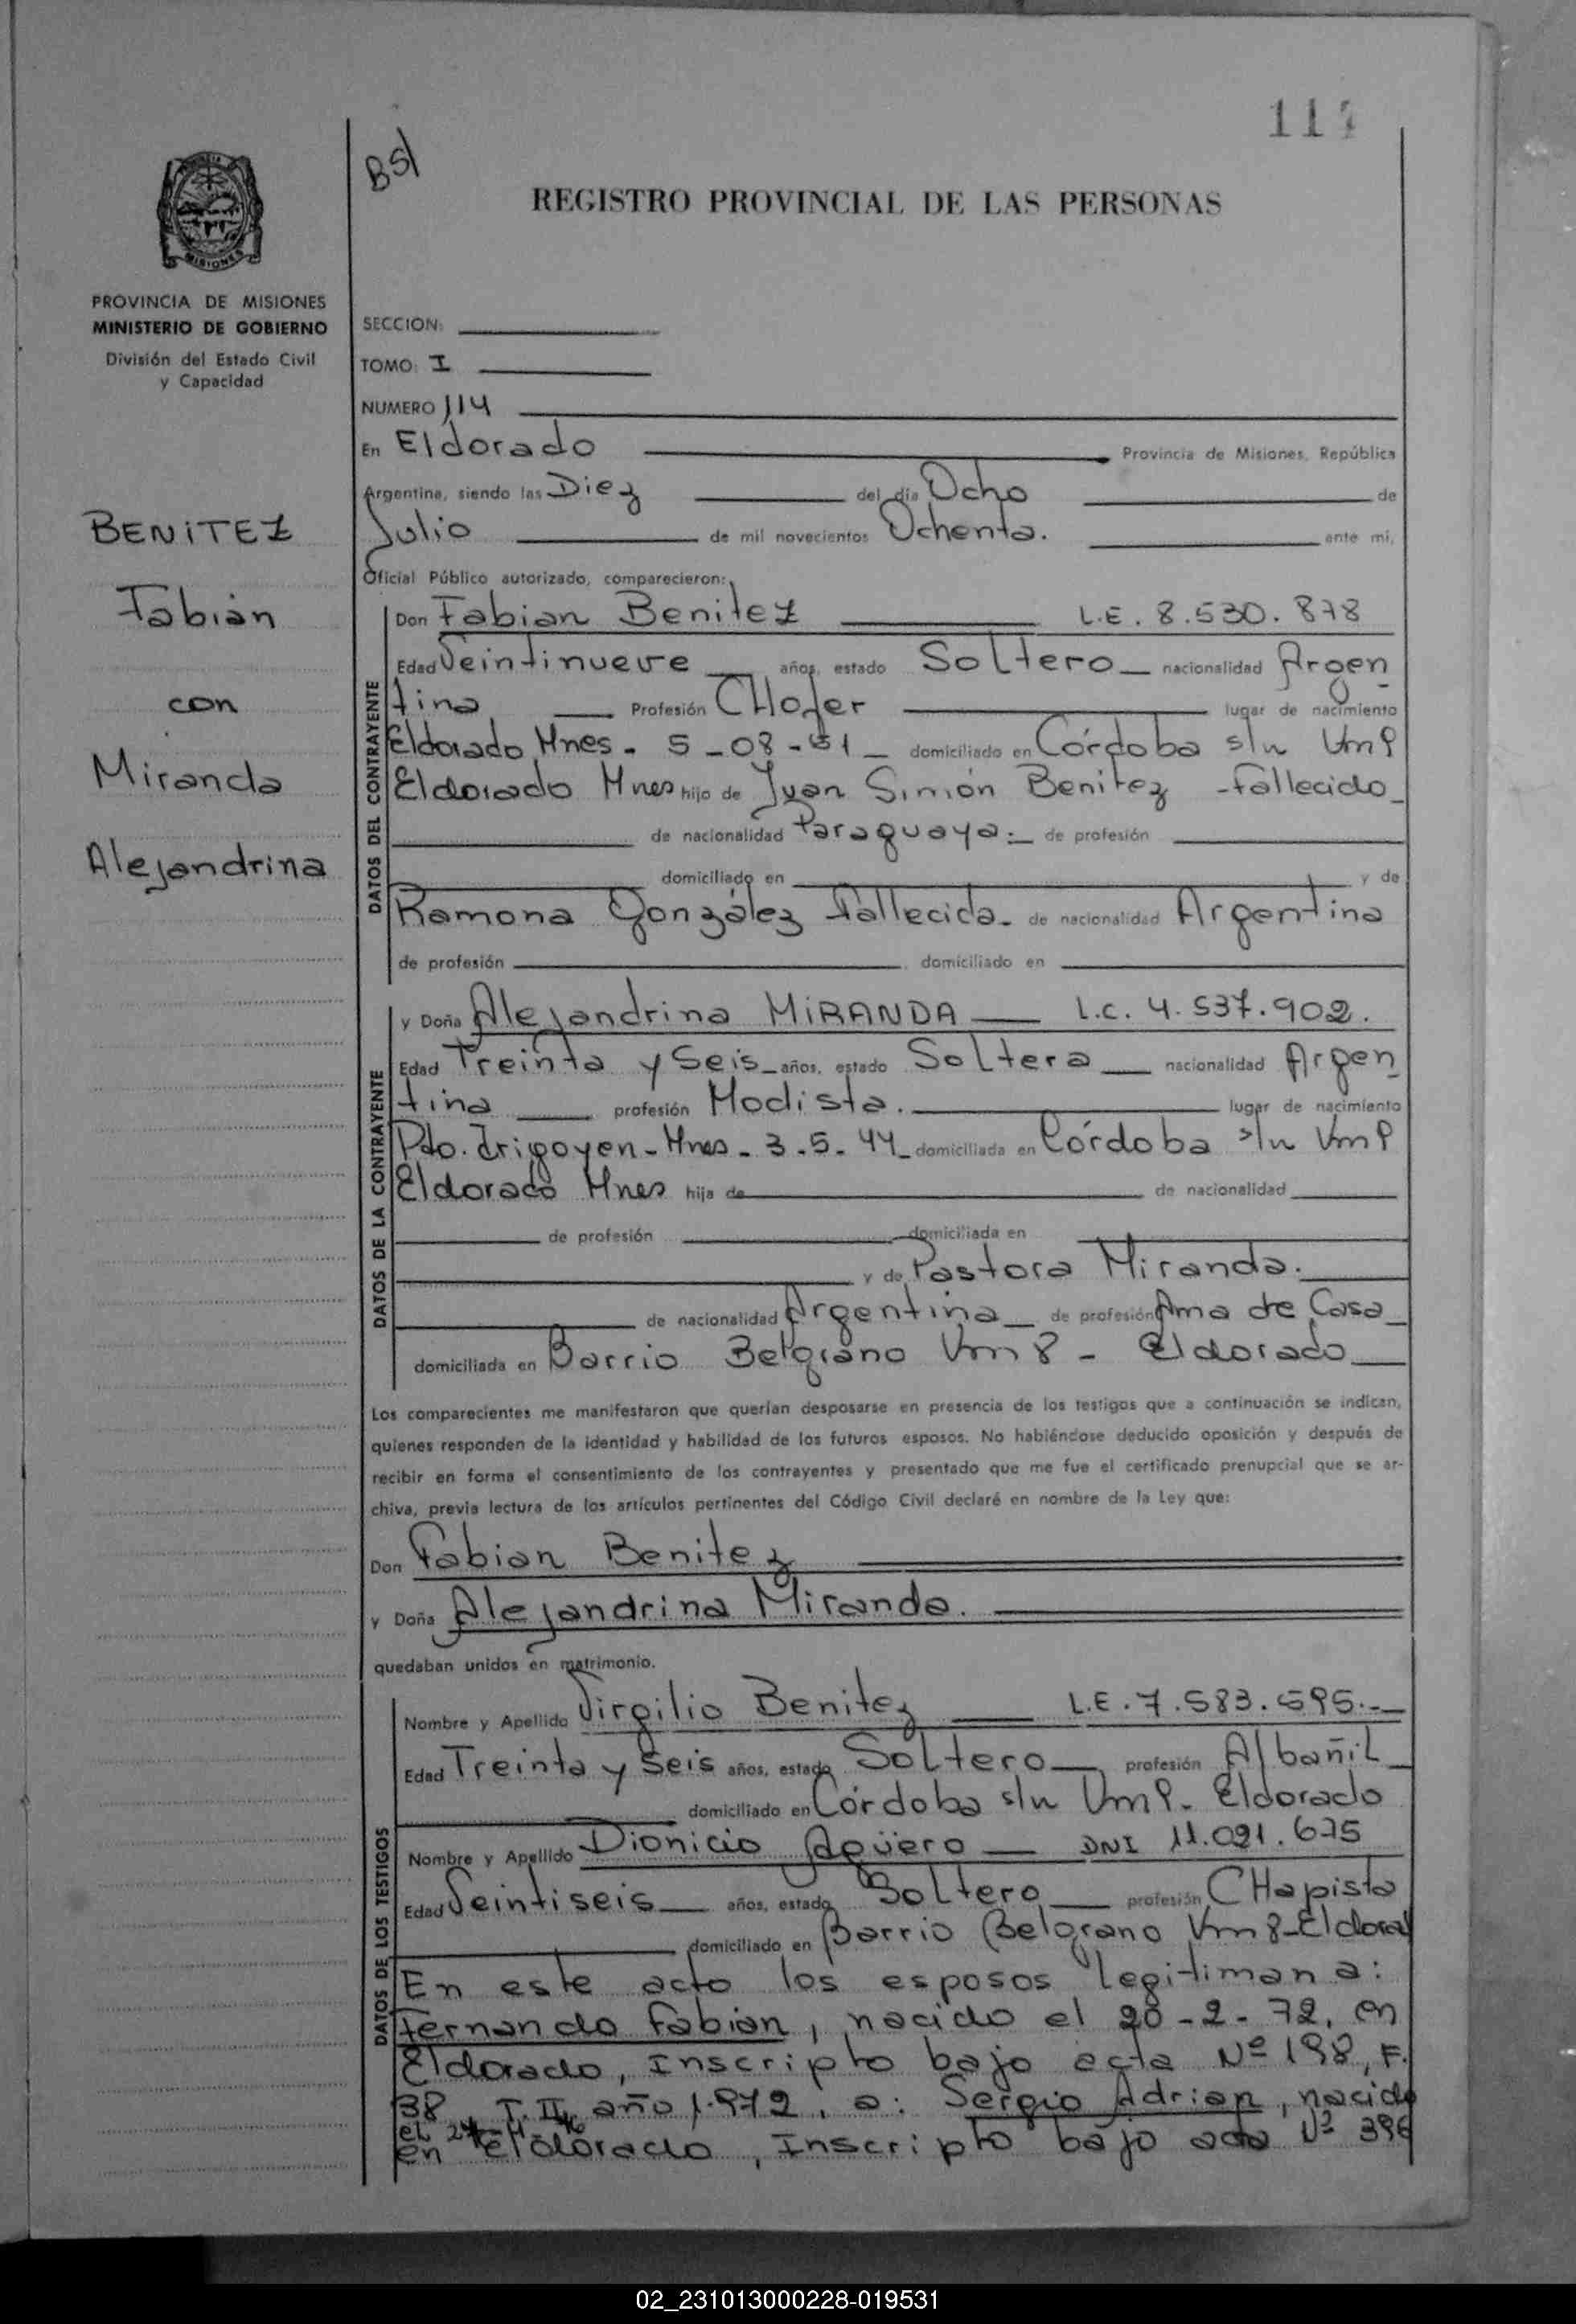 117
BS/
REGISTRO PROVINCIAL DE LAS PERSONAS
MISIONES
PROVINCIA DE MISIONES
MINISTERIO DE GOBIERNO
División del Estado Civil
y Capacidad
BENITEZ
Fabián
con
Miranda
Alejandrina
SECCION:
TOMO: I
NUMERO 114
En Eldorado Provincia de Misiones, República
Argentina, siendo las Diez del día Ocho de
Julio de mil novecientos Ochenta. ante mi,
Oficial Público autorizado, comparecieron:
DATOS DEL CONTRAYENTE
Don Fabian Benitez L.E. 8.530.878
Edad Veintinueve años, estado Soltero nacionalidad Argen
tina Profesión CHofer lugar de nacimiento
Eldorado Mnes. 5-08-51 domiciliado en Córdoba s/n Km 9
Eldorado Mnes hijo de Juan Simón Benitez - Fallecido
de nacionalidad Paraguaya. de profesión
domiciliado en y de
Ramona González Fallecida. de nacionalidad Argentina
de profesión domiciliado en
DATOS DE LA CONTRAYENTE
y Doña Alejandrina MIRANDA L.C. 4.537.902.
Edad Treinta y Seis años, estado Soltera nacionalidad Argen
tina profesión Modista. lugar de nacimiento
Pdo. Irigoyen - Mnes - 3.5.44 domiciliada en Córdoba s/n Km 9
Eldorado Mnes hija de de nacionalidad
de profesión domiciliada en
y de Pastora Miranda.
de nacionalidad Argentina de profesión Ama de Casa
domiciliada en Barrio Belgrano Km 8 - Eldorado
Los comparecientes me manifestaron que querían desposarse en presencia de los testigos que a continuación se indican,
quienes responden de la identidad y habilidad de los futuros esposos. No habiéndose deducido oposición y después de
recibir en forma el consentimiento de los contrayentes y presentado que me fue el certificado prenupcial que se ar-
chiva, previa lectura de los artículos pertinentes del Código Civil declaré en nombre de la Ley que:
Don Fabian Benitez
y Doña Alejandrina Miranda.
quedaban unidos en matrimonio.
DATOS DE LOS TESTIGOS
Nombre y Apellido Virgilio Benitez L.E. 7.583.595.
Edad Treinta y Seis años, estado Soltero profesión Albañil
domiciliado en Córdoba s/n Km 9. Eldorado
Nombre y Apellido Dionicio Agüero DNI 11.021.675
Edad Veintiseis años, estado Soltero profesión CHapista
domiciliado en Barrio Belgrano Km 8-Eldorad
En este acto los esposos legitiman a:
Fernando Fabian, nacido el 20-2-72, en
Eldorado, Inscripto bajo acta Nº 198, F.
38 T.II, año 1.972, a: Sergio Adrian, nacido
el
en Eldorado, Inscripto bajo acta Nº 396
02_231013000228-019531